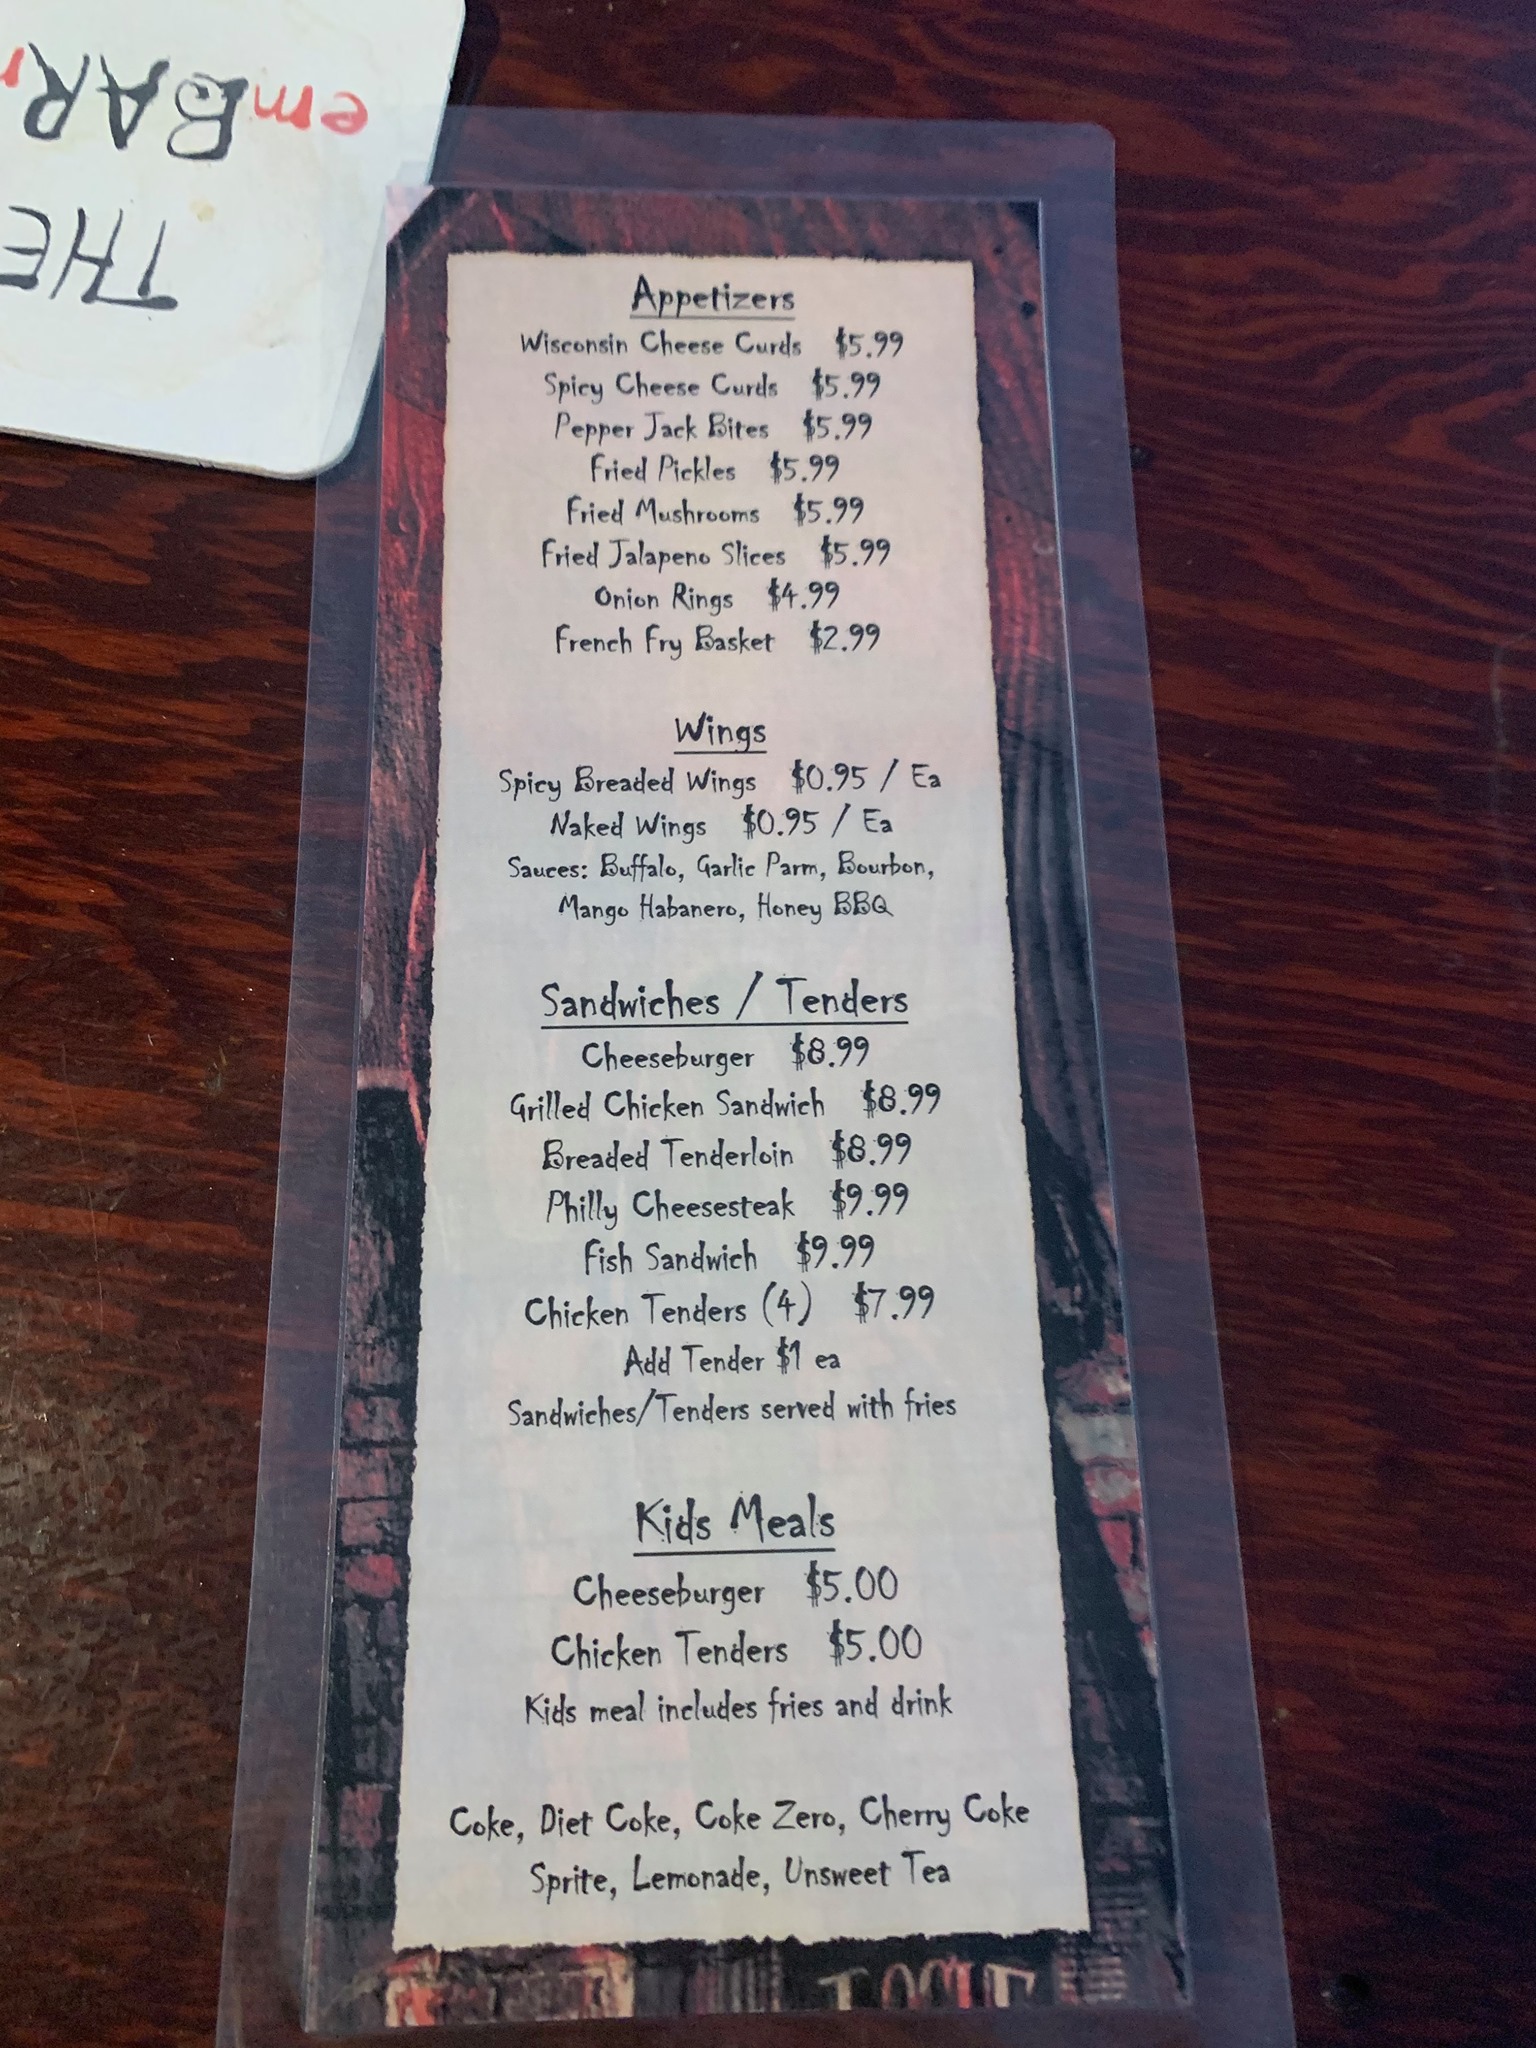 THE
emBAR
Appetizers
Wisconsin Cheese Curds $5.99
Spicy Cheese Curds $5.99
Pepper Jack Bites $5.99
Fried Pickles $5.99
Fried Mushrooms $5.99
Fried Jalapeno Slices $5.99
Onion Rings $4.99
French Fry Basket $2.99
Wings
Spicy Breaded Wings $0.95 / Ea
Naked Wings $0.95 / Ea
Sauces: Buffalo, Garlic Parm, Bourbon,
Mango Habanero, Honey BBQ
Sandwiches / Tenders
Cheeseburger $8.99
Grilled Chicken Sandwich $8.99
Breaded Tenderloin $8.99
Philly Cheesesteak $9.99
Fish Sandwich $9.99
Chicken Tenders (4) $7.99
Add Tender $1 ea
Sandwiches/Tenders served with fries
Kids Meals
Cheeseburger $5.00
Chicken Tenders $5.00
Kids meal includes fries and drink
Coke, Diet Coke, Coke Zero, Cherry Coke
Sprite, Lemonade, Unsweet Tea